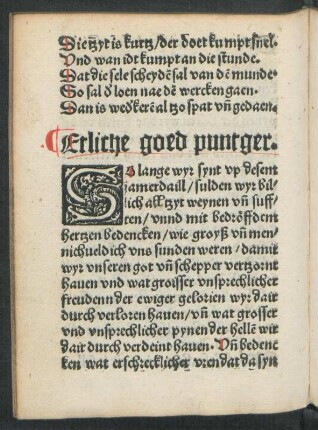 Die tzyt is kurtz/der doet kumpt snel.
Vnd wan idt kumpt an die stunde.
Dat die sele scheydē sal van dē munde
So sal d loen nae dē wercken gaen.
Dan is wedkerē al tzo spat vñ gedaen.
Etliche goed puntger.
So lange wyr synt vp desem
jamerdaill/sulden wyr bil-
lich altzyt weynen vñ suff-
ten/vnnd mit bedröffdem
hertzen bedencken/wie groyß vñ men-
nichueldich vns sunden weren/damit
wyr vnseren got vñ schepper vertzornt
hauen vnd wat grosser vnsprechlicher
freudenn der ewiger gelorien wyr dair
durch verloren hauen/vñ wat grosser
vnd vnsprechlicher pynen der helle wir
dair durch verdeint hauen. Vñ bedenc
ken wat erschrecklicher vren dat da syn